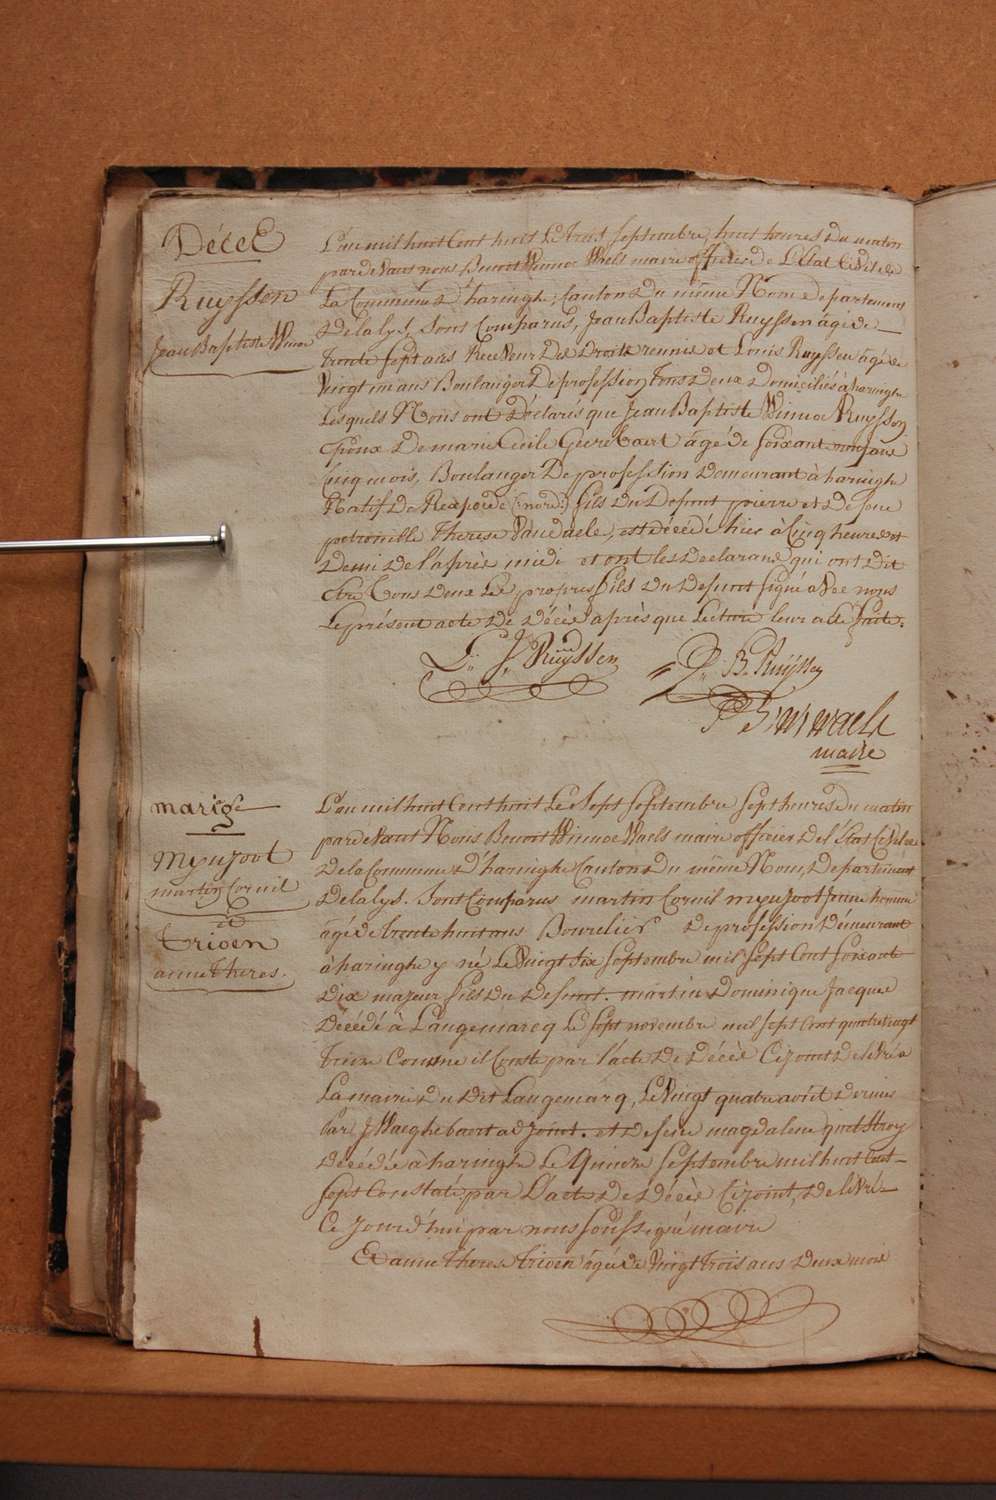 Décet
Ruyssen
Jean Baptiste Winoc
L'an mil huit Cent huit Le trois Septembre, huit heures du matin
pardevant nous Benoit Winnoc Waels maire officier de L'Etat Civil de
La Commune d'haringhe, Canton du même Nom, departement
Delalys, Sont Comparus, Jean Baptiste Ruyssen âgé de
trente sept ans Receveur Des Droits reunis et Louis Ruyssen âgé de
Vingt un ans Boulanger De profession tous Deux Domiciliés à haringhe
Lesquels Nous ont Déclarés que Jean Baptiste Winnoc Ruyssen
Epoux De marie Cecile Geerebaert âgé de soixante onze ans
Cinq mois, Boulanger De profession Demeurant à haringhe
Natif De Rexpoede (:nord:) fils Du Defunt pierre et defunte
petronille Therese Vandaele, est décédé hier à Cinq heures et
Demi De l'après midi et ont les Declarans qui ont Dit
être tous Deux Les propres fils Du Defunt signé avec nous
Le présent acte De Décès après que Lecture leur a été faite.
L: J. Ruyssen
J: B. Ruyssen
B W Waels
maire
marige
Myngoot
martin Corneil
et
trioen
anne theres.
L'an mil huit Cent huit Le Sept Septembre Sept heures du matin
pardevant Nous Benoit Winnoc Waels maire officier de l'état Civil
De la Commune d'haringhe Canton du même Nom, Departement
Delalys. Sont Comparus martin Corneil myngoot Jeune homme
âgé de trente huit ans Bourelier De profession Demeurant
à haringhe y né Le Vingt Six Septembre mil Sept Cent Soixante
Dix majeur fils Du Defunt martin Dominique Jacque
Décédé à Langemarcq Le sept novembre mil sept Cent quatrevingt
treize Comme il Conste par l'acte De Décès Cijoint Delivré a
La mairie Du dit Langemarq, Le Vingt quatre août Dernier
Par J Waeghebaert adjoint. et Defunte magdalene
Décédée à haringhe Le Quinze Septembre mil huit Cent
Sept Constaté par L'acte De décès Cijoint, Delivré
Ce Jourd'hui par nous soussigné maire
Et anne therese trioen âgée De Vingt trois ans Deux mois